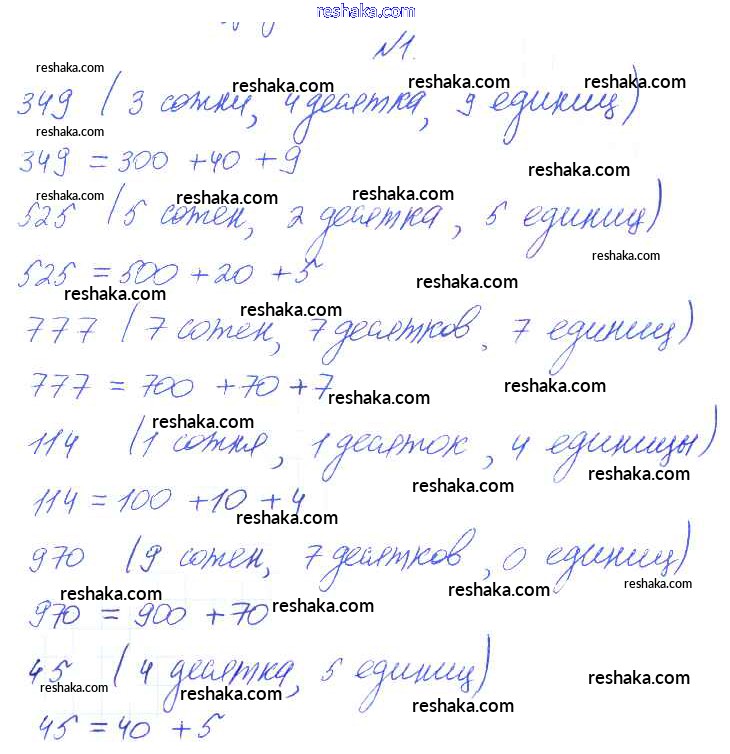 reshaka.com
№1.
reshaka.com
reshaka.com reshaka.com reshaka.com
349 (3 сотни, 4 десятка, 9 единиц)
reshaka.com
349 = 300 + 40 + 9
reshaka.com
reshaka.com reshaka.com reshaka.com
525 (5 сотен, 2 десятка, 5 единиц)
reshaka.com
525 = 500 + 20 + 5
reshaka.com reshaka.com
reshaka.com
777 (7 сотен, 7 десятков, 7 единиц)
777 = 700 + 70 + 7
reshaka.com reshaka.com
reshaka.com
114 (1 сотня, 1 десяток, 4 единицы)
reshaka.com
reshaka.com
114 = 100 + 10 + 4
reshaka.com
970 (9 сотен, 7 десятков, 0 единиц)
reshaka.com reshaka.com reshaka.com
970 = 900 + 70
reshaka.com
45 (4 десятка, 5 единиц)
reshaka.com reshaka.com reshaka.com
45 = 40 + 5
reshaka.com